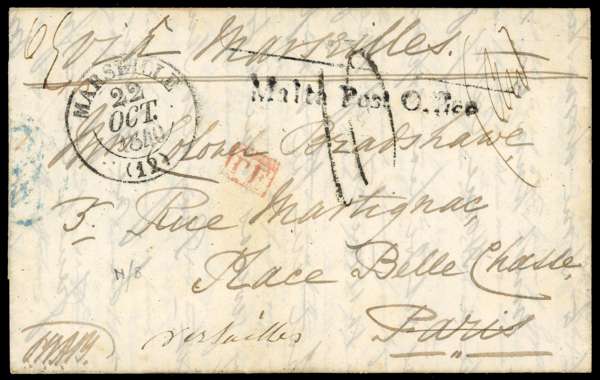 viâ Marseilles.
MARSEILLE
22
OCT.
1840
(12)
Malta Post Office
Colonel Bradshawe,
P.F.
3. Rue Martignac,
Place Belle Chasse,
N/8
Versailles
Paris